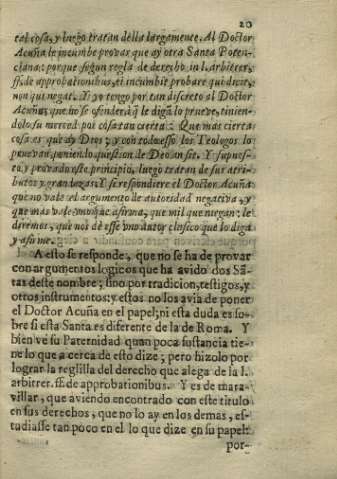 20
tal cosa, y luego tratan della largamente. Al Doctor
Acuña le incumbe provar que ay otra Santa Poten-
ciana: porque segun regla de derecho in l. arbiter,
ff. de approbationibus, ei incumbit probare qui dicit,
non qui negat. Y yo tengo por tan discreto al Doctor
Acuña, que no se ofenderà q̃ le digã lo prueve, tenien-
dolo su merced por cosa tan cierta: Que mas cierta
cosa es que ay Dios; y con todo esso los Teologos lo
pruevan, poniendo question de Deo an sit. Y supues-
to, y provado este principio, luego tratan de sus atri-
butos y grandezas: Y si respondiere el Doctor Acuña
que no vale el argumento de autoridad negativa, y
que mas vale uno que afirma, que mil que niegan: le
diremos, que nos dè esse uno autor clasico que lo diga
y afirme.
A esto se responde, que no se ha de provar
con argumentos logicos que ha avido dos Sã-
tas deste nombre; sino por tradicion, testigos, y
otros instrumentos: y estos no los avia de poner
el Doctor Acuña en el papel; ni esta duda es so-
bre si esta Santa es diferente de la de Roma. Y
bien vè su Paternidad quan poca sustancia tie-
ne lo que a cerca de esto dize; pero hizolo por
lograr la reglilla del derecho que alega de la l.
arbiter. ff. de approbationibus. Y es de mara-
villar, que aviendo encontrado con este titulo
en sus derechos, que no lo ay en los demas, es-
tudiasse tan poco en el lo que dize en su papel:
por-